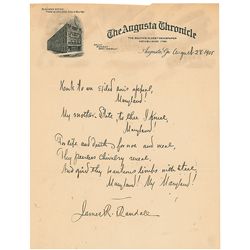 The Augusta Chronicle
THE SOUTH'S OLDEST NEWSPAPER
ESTABLISHED 1785
Augusta, Ga. August 28, 1905
Hark to an exiled son's appeal,
Maryland.
My mother State to thee I kneel,
Maryland
For life and death, for woe and weal,
Thy peerless chivalry reveal,
And gird thy beauteous limbs with steel,
Maryland! My Maryland!
James R. Randall